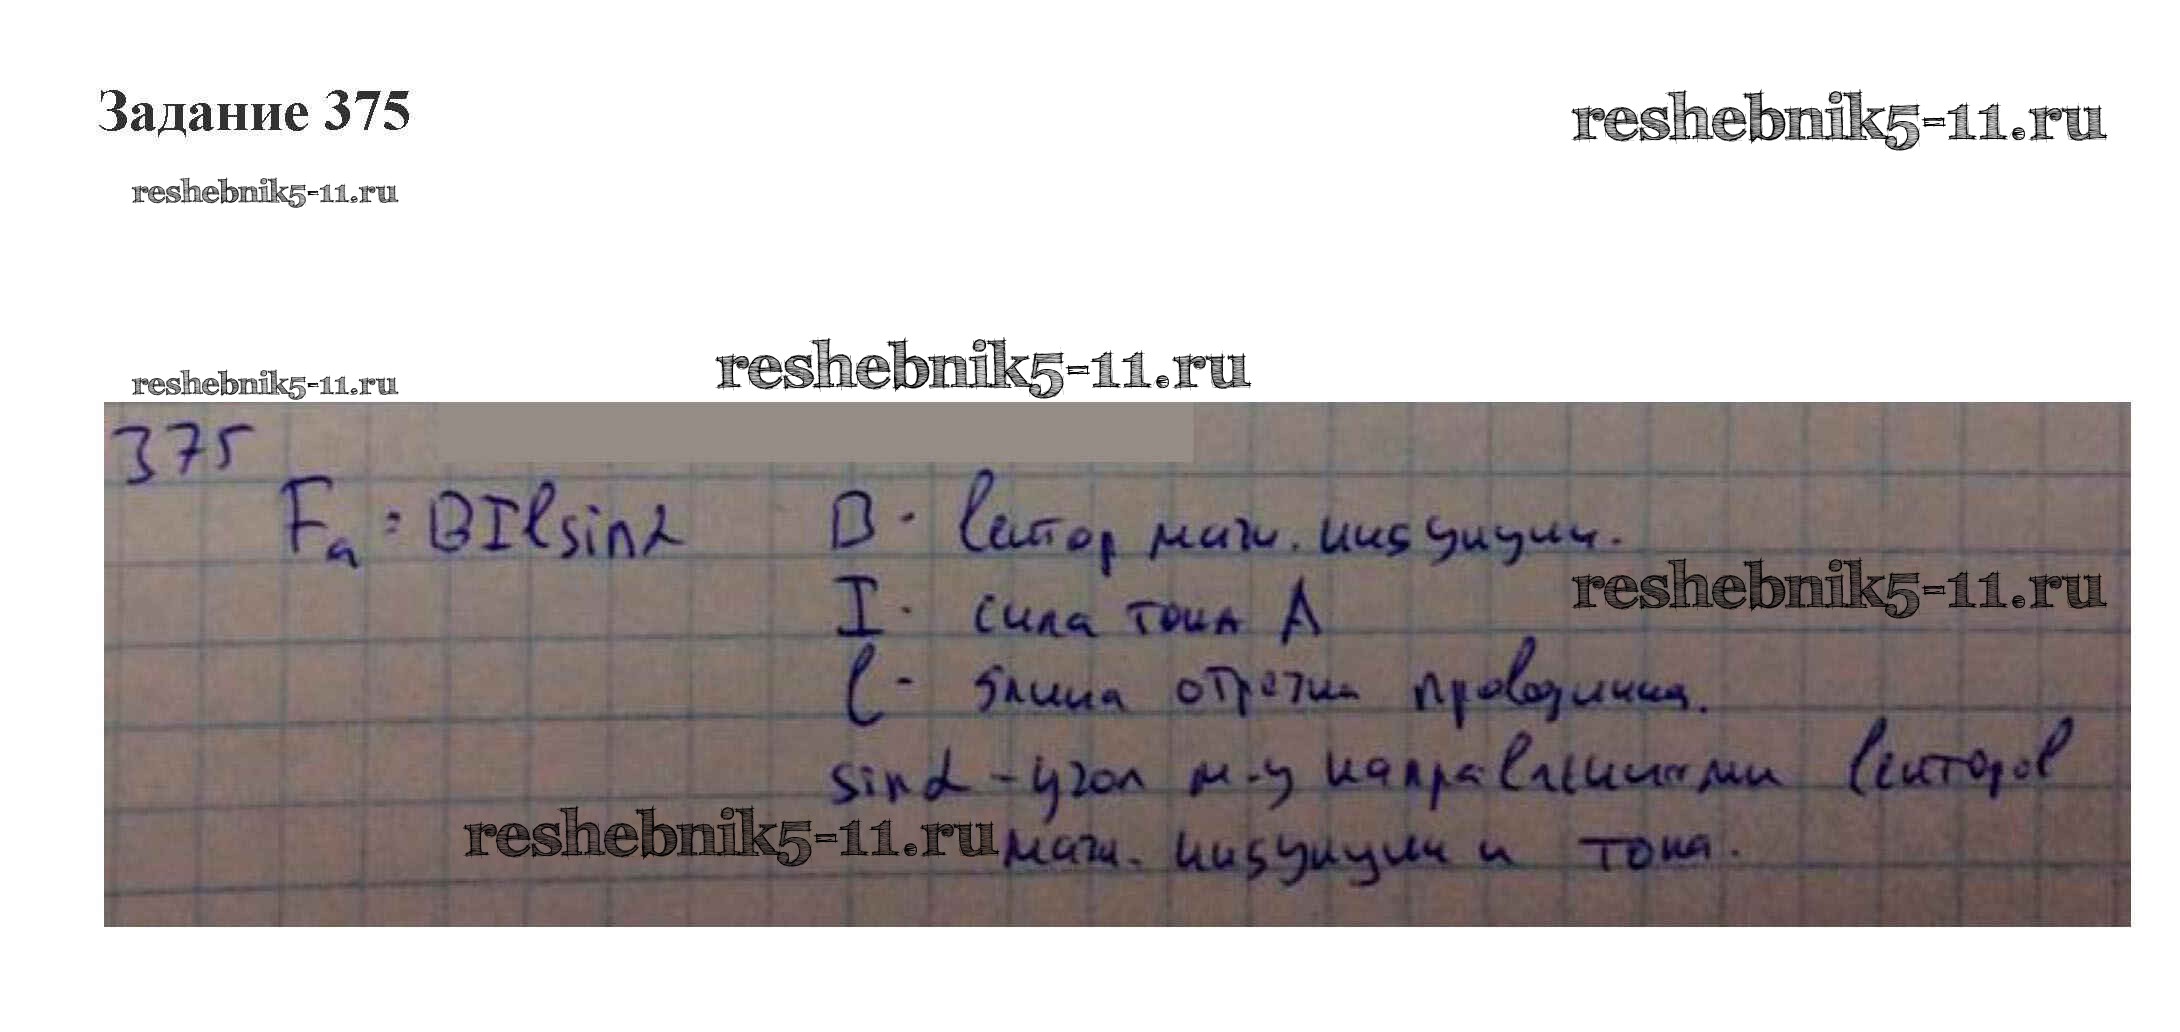 Задание 375
reshebnik5-11.ru
reshebnik5-11.ru
reshebnik5-11.ru
reshebnik5-11.ru
375
Fа = BIlsinα
B - вектор магн. индукции.
I - сила тока А
reshebnik5-11.ru
l - длина отрезка проводника.
sinα - угол м-у направлениями векторов
reshebnik5-11.ru
магн. индукции и тока.